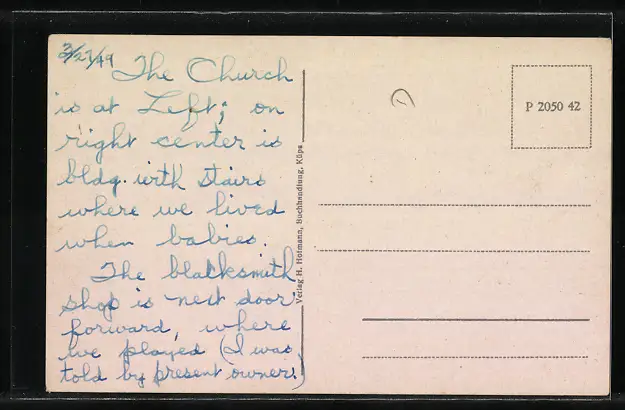 2/27/49 The Church
is at Left; on
right center is
bldg. with stairs
where we lived
when babies.
The blacksmith
shop is next door
forward, where
we played (I was
told by present owner.)
Verlag H. Hofmann, Buchhandlung, Küps
P 2050 42